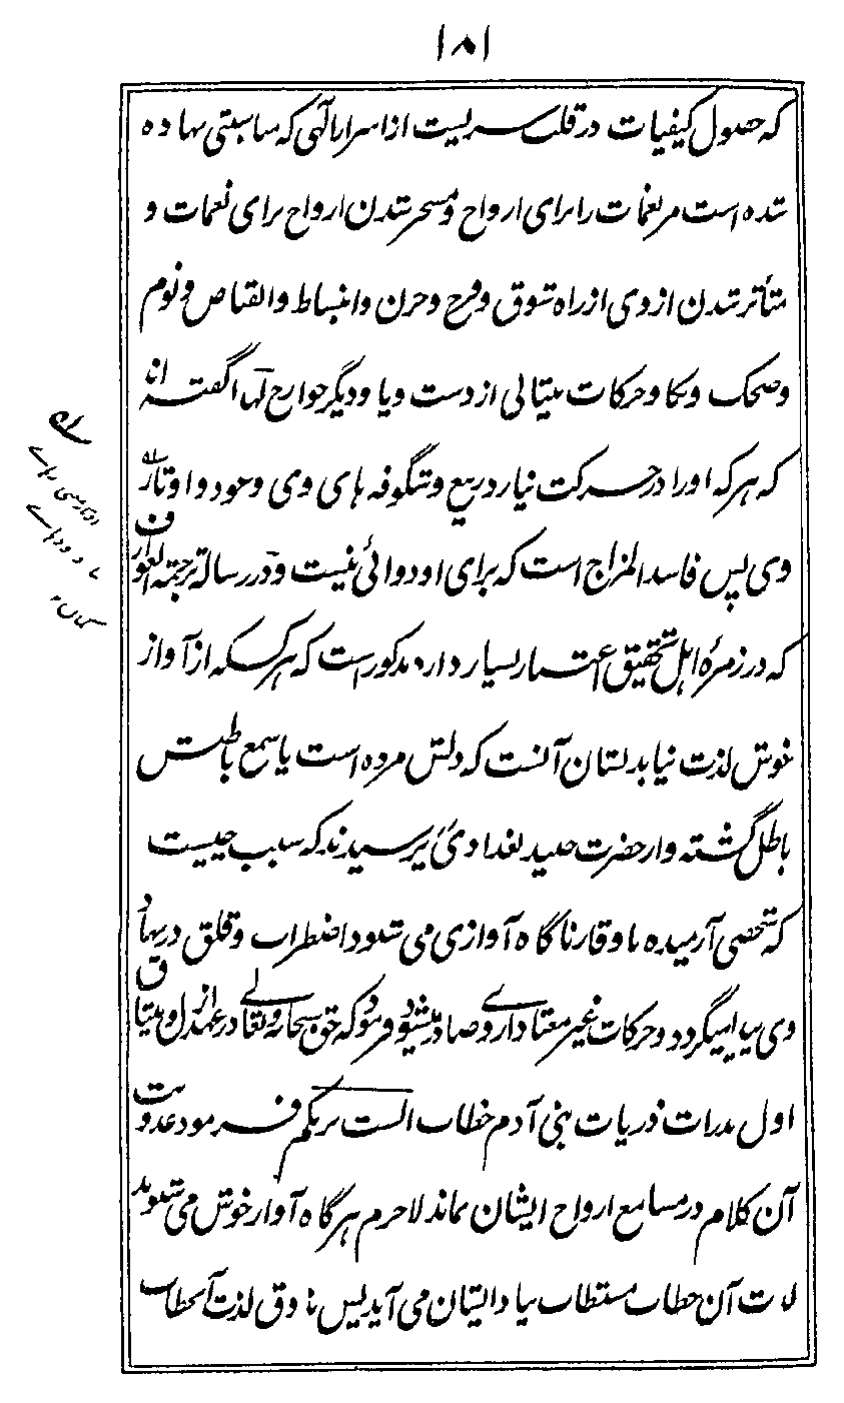 ۱۸۱
که حصول کیفیات در قلب سریست از اسرار الٰهی که مناسبتی نهاده
شده است مر نغمات را برای ارواح و مسخر شدن ارواح برای نغمات و
متأثر شدن از وی از راه شوق و فرح و حزن و انبساط و انقباض و نوم
و ضحک و بکا و حرکات بیتابی از دست و پا و دیگر جوارح لهٰذا گفته اند
که هر که او را در حرکت نیارد ربیع و شگوفه های وی و عود و اوتار
وی پس فاسد المزاج است که برای او دوائی نیست و در رساله ترجمة العوارف
که در زمرهٔ اهل تحقیق اعتبار بسیار دارد مذکور است که هر کسکه از آواز
خوش لذت نیابد نشان آنست که دلش مرده است یا سمع باطنش
باطل گشته و از حضرت جنید بغدادیؒ پرسیدند که سبب چیست
که شخصی آرمیده با وقار ناگاه آوازی می شنود اضطراب و قلق در نهاد
وی پیدا میگردد و حرکات غیر معتاد از وی صادر میشود فرمود که حق سبحانه و تعالے در عهد ازل و میثاق
اول بذرات ذریات بنی آدم خطاب الست بربکم فرمود عذوبت
آن کلام در مسامع ارواح ایشان بماند لاجرم هرگاه آواز خوش می شنوند
لذت آن خطاب مستطاب بیاد ایشان می آید پس بذوق لذت آنخطاب